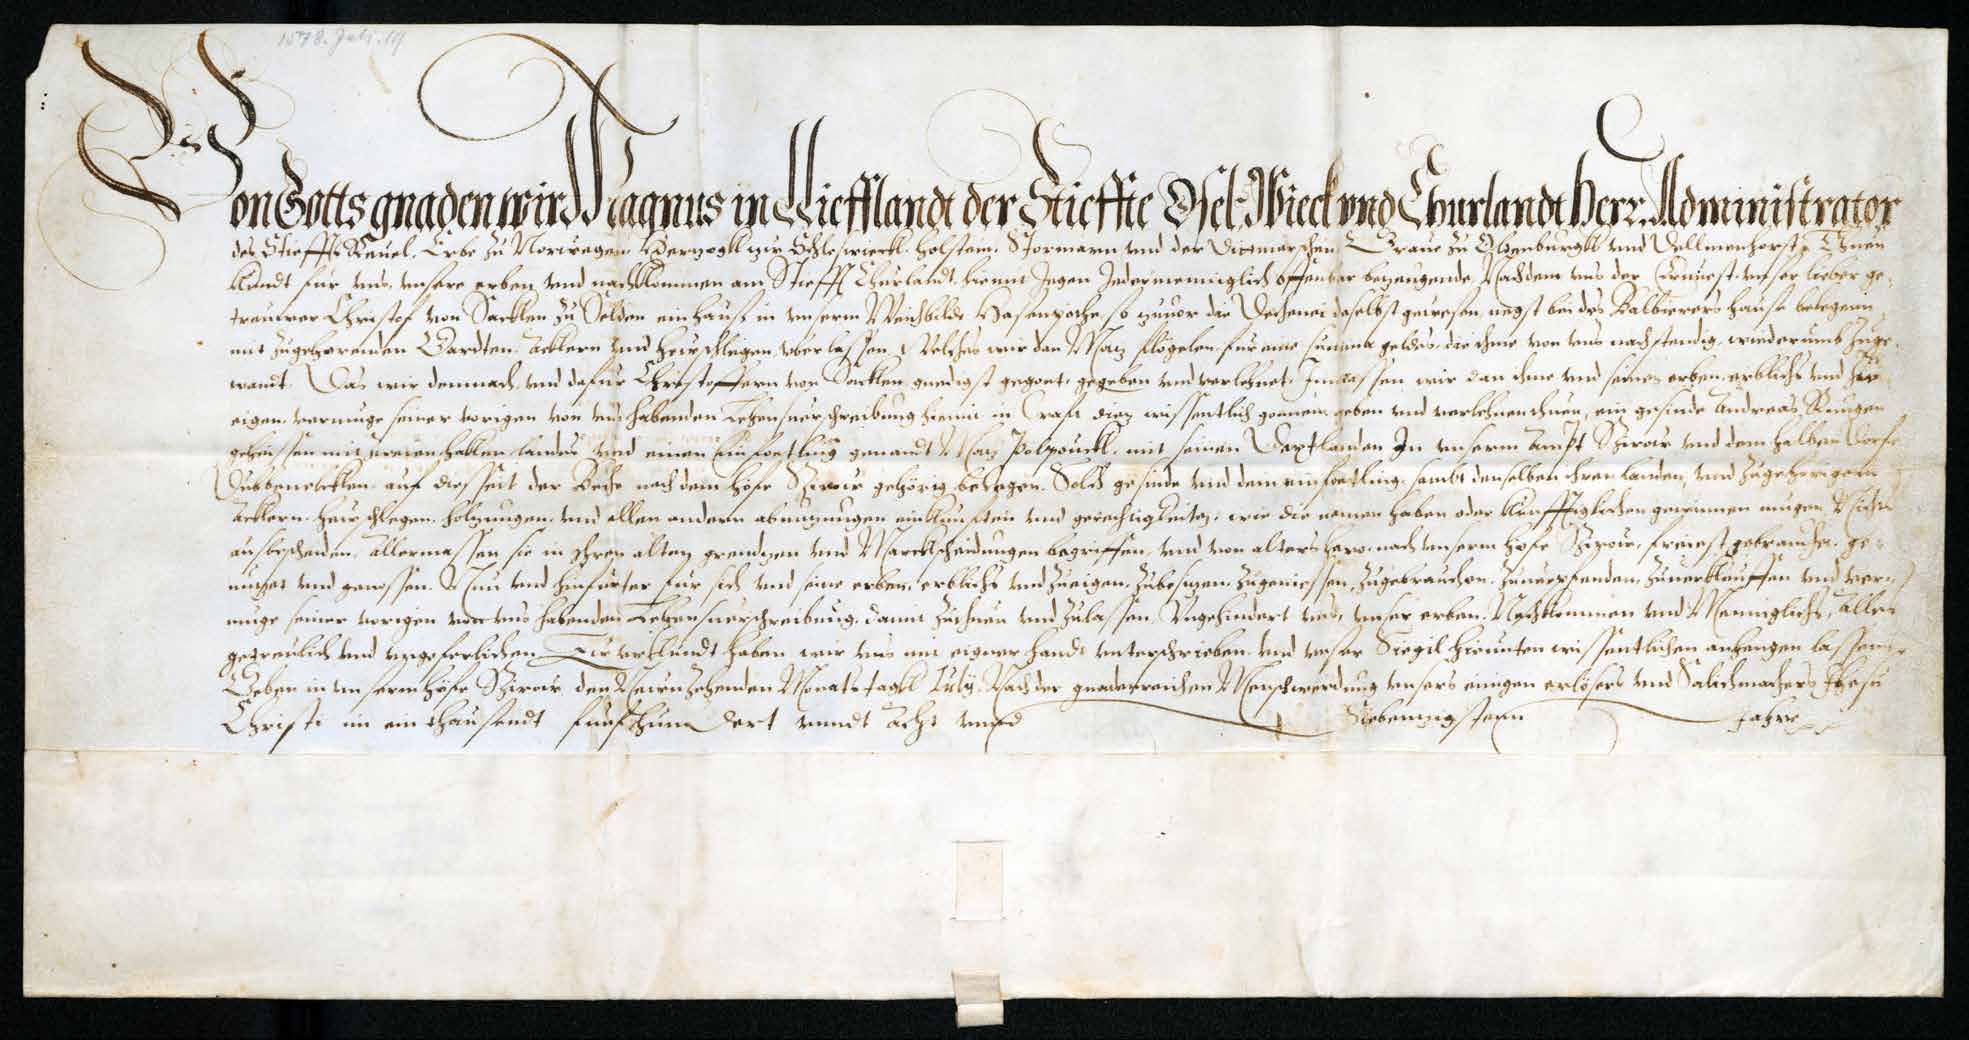 1578. Juli. 19
Von Gotts gnaden wir Magnus in Liefflandt der Stieffte Osel, Wieck vnd Churlandt Herr. Administrator
des Stieffts Reuel. Erbe zu Norwegen. Hertzogk zur Schleswieck. Holstein. Stormarn vnd der Ditmarschen. Graue zu Oldenburgk vnd Dellmenhorst. Thuen
kundt fur vns, vnsere erben vnd nachkommen am Stiefft Churlandt. hiemit Jegen Jedermenniglich offenbar bezeugende, Nachdem vns der Ernuest. vnser lieber ge-
treuwer Christof von Sacken zu ein hauß in vnserm Weichbilde Hasenpothe, so zuuor die Decheney daselbst gewesen, negst bei des Balbierers hause belegenn
mit zugehorenden Gardten. Acklern vnd heuschlegen vberlassen, Welchs wir dan fur eine summa geldes, die ihme von vns nachstendig, wiederumb zuge-
wandt. Das wir demnach, vnd dafur Christoffern von Sacken gnedigst gegont, gegeben vnd verlehnet. Inmassen wir dan ihme vnd seinen erben, erblichs vnd zu
eigen. vermuge seiner vorigen von vns habenden Lehensuerschreibung hiemit in Craft dies wissentlich gonnen, geben vnd verlehnen thuen, ein gesinde Andreas
geheissen mit hacken landes vnd einen einfoetling genandt mit seinen landen In vnserm Ampt vnd dem halben Dorfe
auf diesseit der Beche nach dem hofe gehörig belegen. Solch gesinde vnd dem einfoetling sambt denselben ihren landen, vnd zugehörigenn
Acklern. heuschlegen. holtzungen. vnd allen andern abnutzungen einkunften vnd gerechtigkeiten, wie die namen haben oder kunfftiglichen gewinnen mugen Nichts
ausbescheiden, Allermassen sie in ihren alten grentzen vnd Marckscheidungen begriffen, vnd von alters hero. nach vnserm hofe freiest gebrauchet. ge-
nutzet vnd genossen. Nun vnd hinfurter fur sich vnd seine erben, erblichs vnd zueigen. zubesitzen. zugeniessen, zugebrauchen. zuuerpfenden, zuuerkauffen vnd ver-
muge seiner vorigen von vns habenden Lehensuerschreibung, damit zuthuen vnd zulassen. Vngehindert vns, vnser erben. Nachkommen vnd Menniglichs, Alles
getreulich vnd vngeferlichen Zur vrkundt haben wir vns mit eigner handt vnterschrieben. vnd vnser Siegil hirunten wissentlichen anhengen lassenn
Geben in vnserm hofe den Neunzehenden Monats tagk July. Nach der gnadenreichen Menschwerdung vnsers einigen erlösers vnd Salichmachers Jhesu
Christi im ein thausendt funfhundert vnndt acht vnnd Siebentzigstenn Jahre